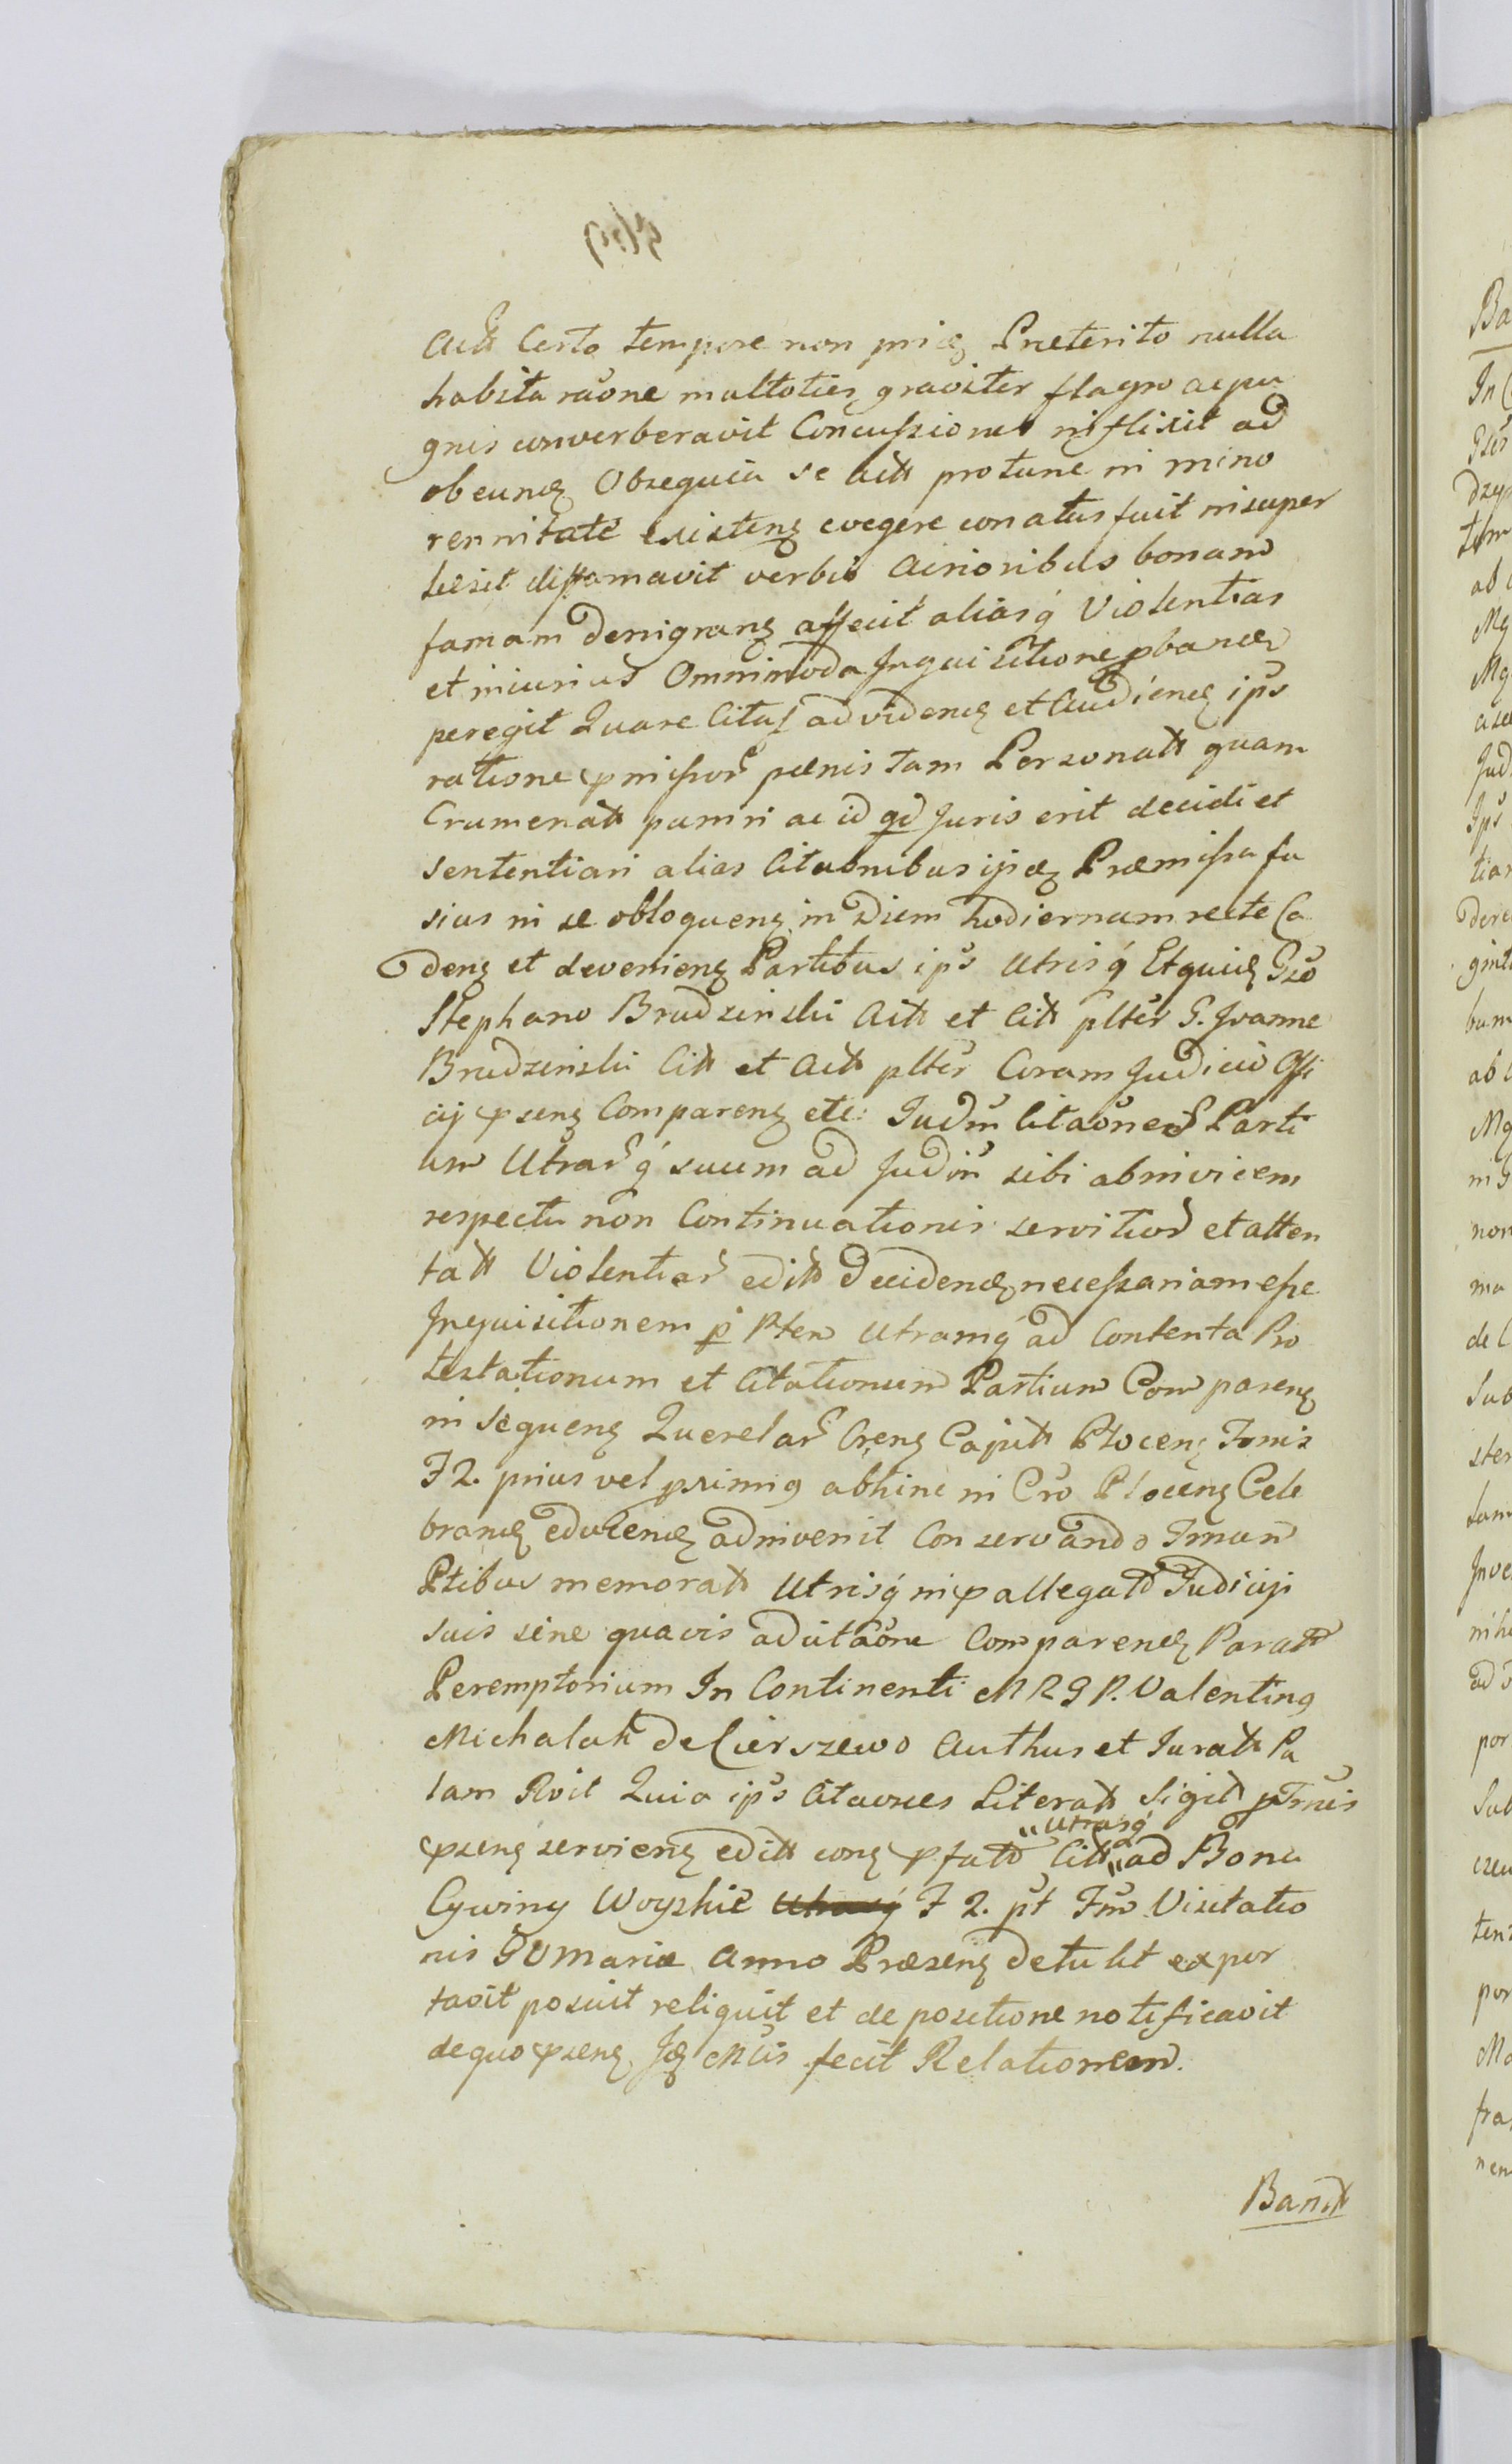 Actt Certo tempore non pridę Præterito nulla
habita raõne multoties graviter flagro ac pu
gnis converberavit Concussiones inflixit ad
obeundę Obsequia se Actt protunc in mino
rennitate existenę cogere conatus fuit insuper
læsit diffamavit verbis Acrioribus bonam
famam denigranę affecit aliasq́ Violentias
et iniurias Omnimoda Inquisitione pbandę
peregit Quare Citatſ ad videndę et Audiendę ips
ratione pmissor pænis tam Personatt quam
Crumenatt puniri ac id qd Juris erit decidi et
sententiari alias Citaõnibus ipsę Præmissa fu
sius in se obloquenę in Diem hodiernam recte Ca
denę et devenienę Partibus ips Utrisq́ Etquidę Gso
Stephano Brudzinski Actt et Citt plter G. Joanne
Brudzinski Citt et Actt plter Coram Judicio Offi
cij psenę Comparenę etc: Judm Citaõnes Parti
um Utrarq́ suum ad Judm sibi abinvicem
respectu non Continuationis servitior et atten
tatt Violentiar editt Decidendę necessariam esse
Inquisitionem p Ptem Utramq́ ad Contenta Pro
testationum et Citationum Partium Comparenę
in sequenę Querelar Crenę Capitt Plocenę Fmis
F 2. prius vel primis abhinc in Cro Plocenę Cele
brandę educendę adinvenit Conservando Fmum
Ptibus memoratt Utrisq́ in pallegatt Judicijs
suis sine quavis adcitaõne Comparendę Paratt
Peremptorium In Continenti M R G P. Valentinq
Michalak de Cierszewo Authus et Juratt Pa
lam Rvit Quia ips Citaõnes Literatt Sigill pFmis
psenę servienę editt conę pfatt Citt „Utrasq́„ ad Bona
Cywiny Woyskie Utrasq́ F 2. pt Fm Visitatio
nis BVMariæ Anno Præsenę detulit expor
tavit posuit reliquit et de positione notificavit
de quo psenę Ję Mtis fecit Relationem.
Banitt